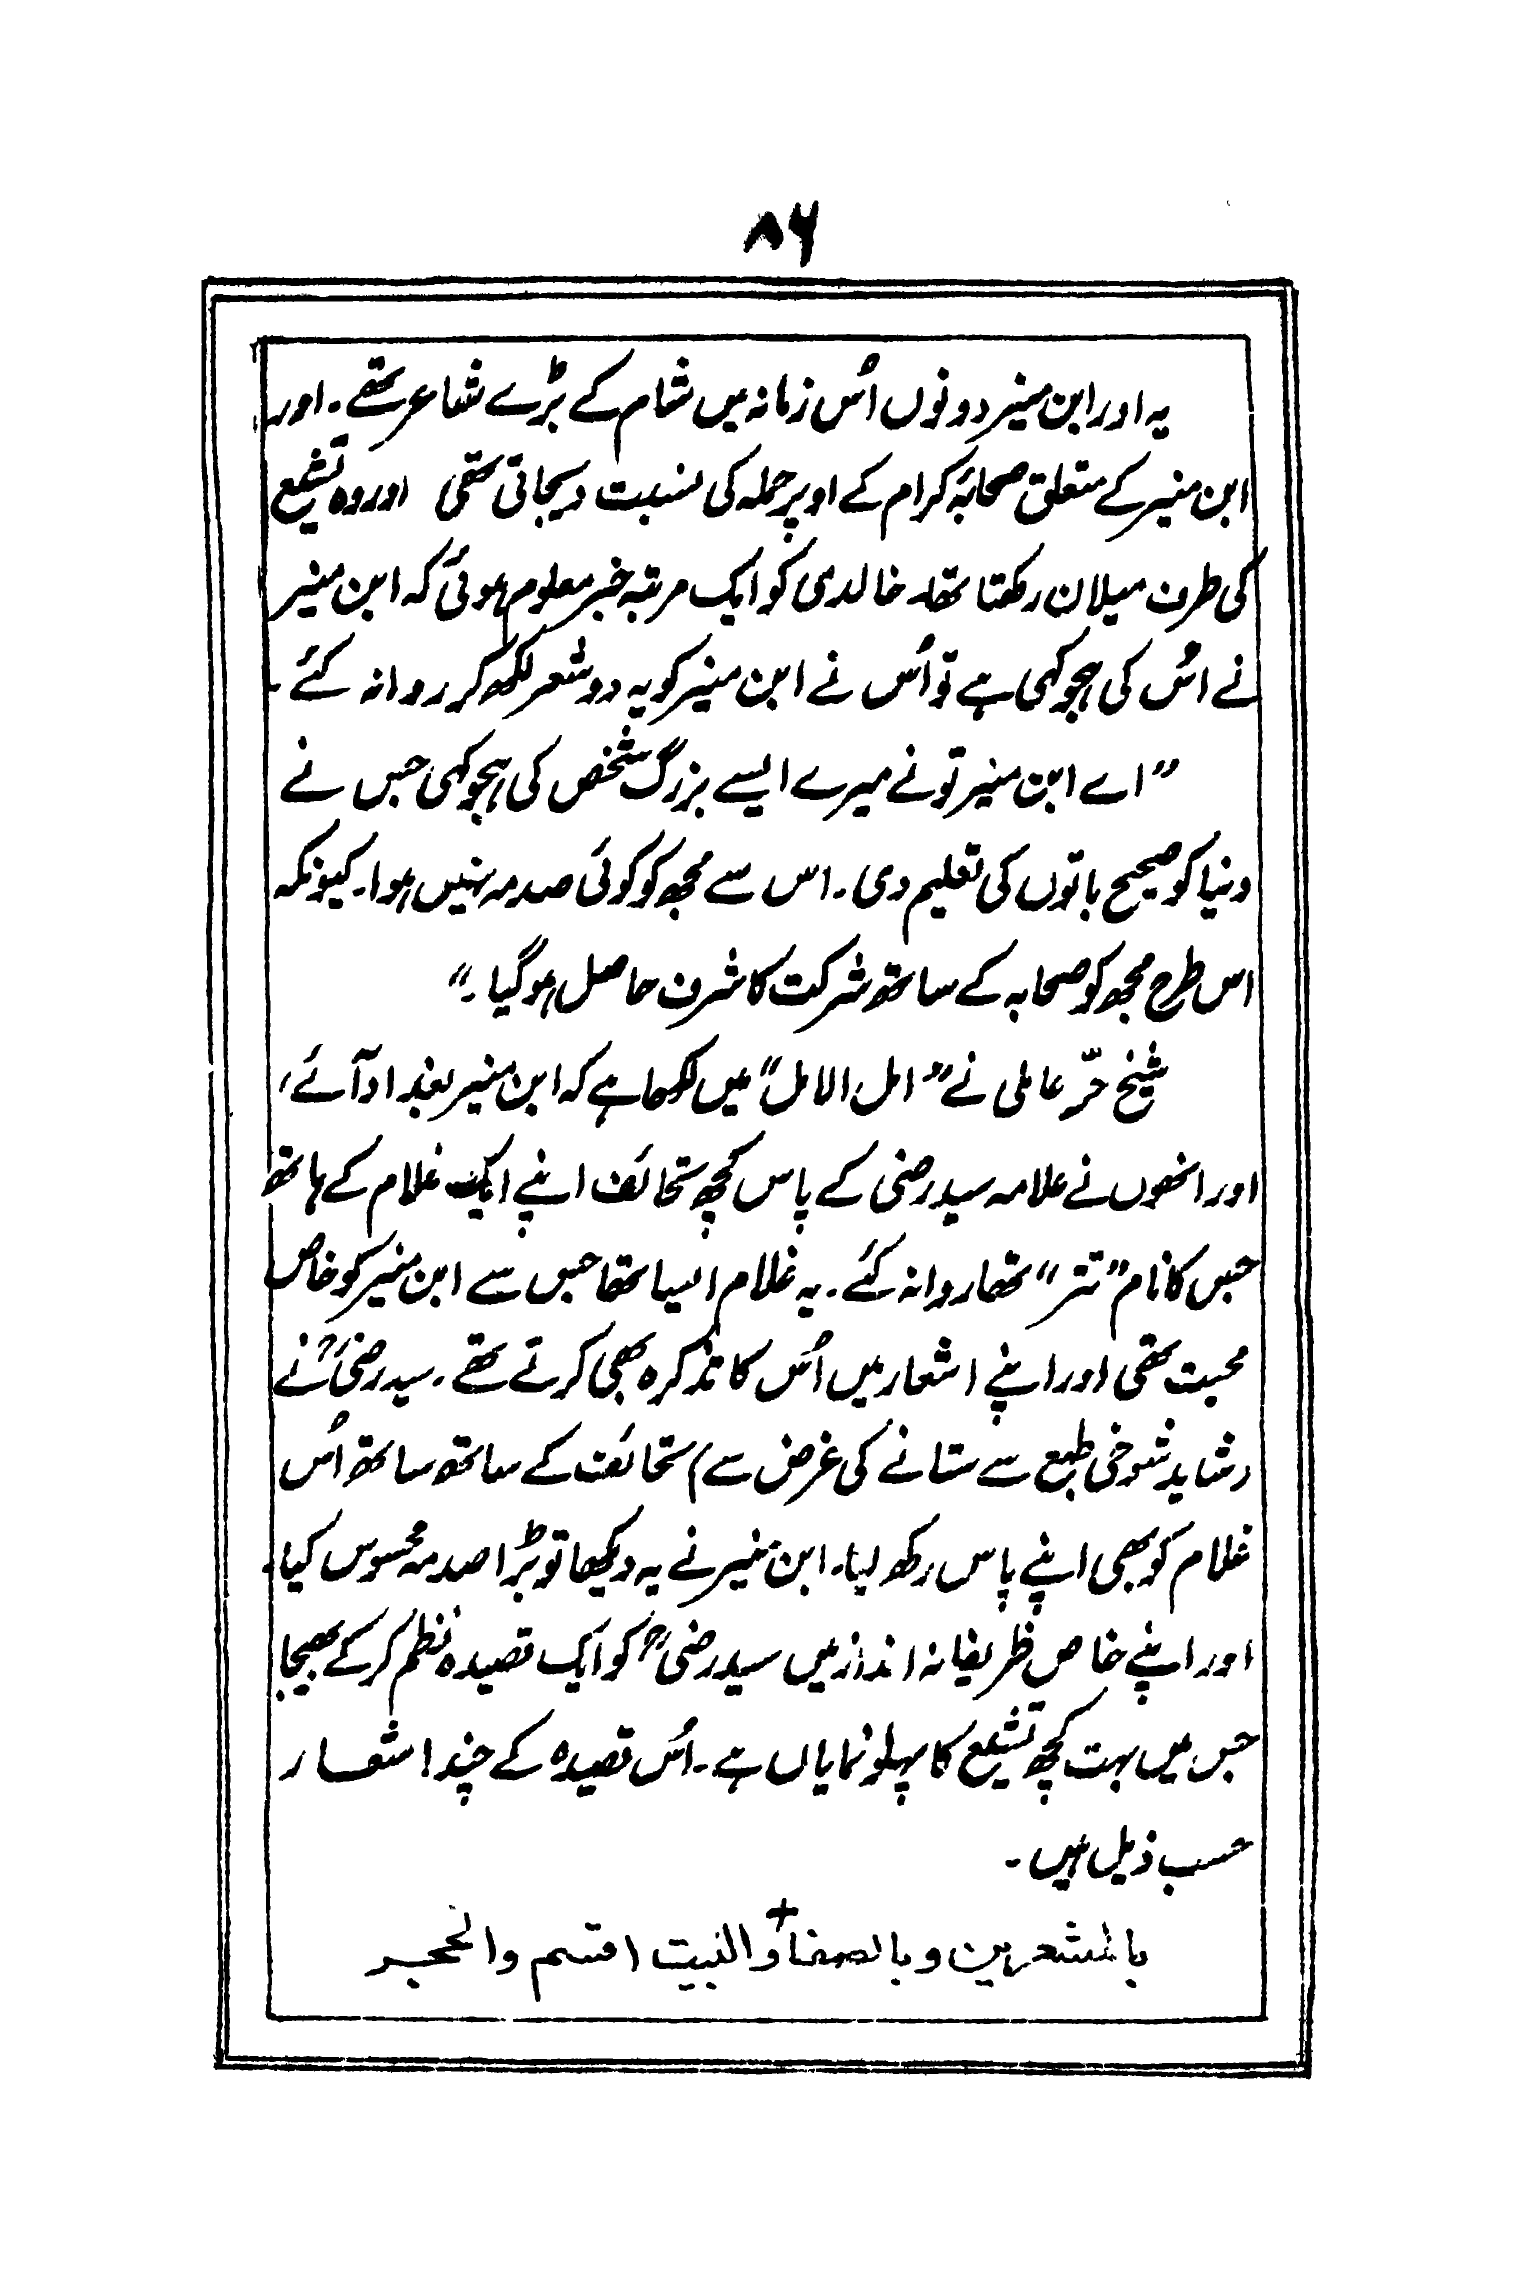 ۸۶
یہ اور ابن منیر دونوں اُس زمانہ میں شام کے بڑے شاعر تھے۔ اور
ابن منیر کے متعلق صحابۂ کرام کے اوپر حملہ کی نسبت دیجاتی تھی اور وہ تشیع
کی طرف میلان رکھتا تھا۔ خالدی کو ایک مرتبہ خبر معلوم ہوئی کہ ابن منیر
نے اُس کی ہجو کہی ہے تو اُس نے ابن منیر کو یہ دو شعر لکھ کر روانہ کئے۔
”اے ابن منیر تو نے میرے ایسے بزرگ شخص کی ہجو کہی جس نے
دنیا کو صحیح باتوں کی تعلیم دی۔ اس سے مجھ کو کوئی صدمہ نہیں ہوا۔ کیونکہ
اس طرح مجھ کو صحابہ کے ساتھ شرکت کا شرف حاصل ہو گیا۔“
شیخ حرّ عاملی نے ”امل الامل“ میں لکھا ہے کہ ابن منیر بغداد آئے،
اور انھوں نے علامہ سید رضی کے پاس کچھ تحائف اپنے ایک غلام کے ہاتھ
جس کا نام ”تتر“ تھا روانہ کئے۔ یہ غلام ایسا تھا جس سے ابن منیر کو خاص
محبت تھی اور اپنے اشعار میں اُس کا تذکرہ بھی کرتے تھے۔ سید رضیؒ نے
(شاید شوخی طبع سے ستانے کی غرض سے) تحائف کے ساتھ ساتھ اُس
غلام کو بھی اپنے پاس رکھ لیا۔ ابن منیر نے یہ دیکھا تو بڑا صدمہ محسوس کیا۔
اور اپنے خاص ظریفانہ انداز میں سید رضیؒ کو ایک قصیدہ نظم کر کے بھیجا
جس میں بہت کچھ تشیع کا پہلو نمایاں ہے۔ اُس قصیدہ کے چند اشعار
حسب ذیل ہیں۔
بالمشعرین وبالصفا + والبیت اقسم والحجر